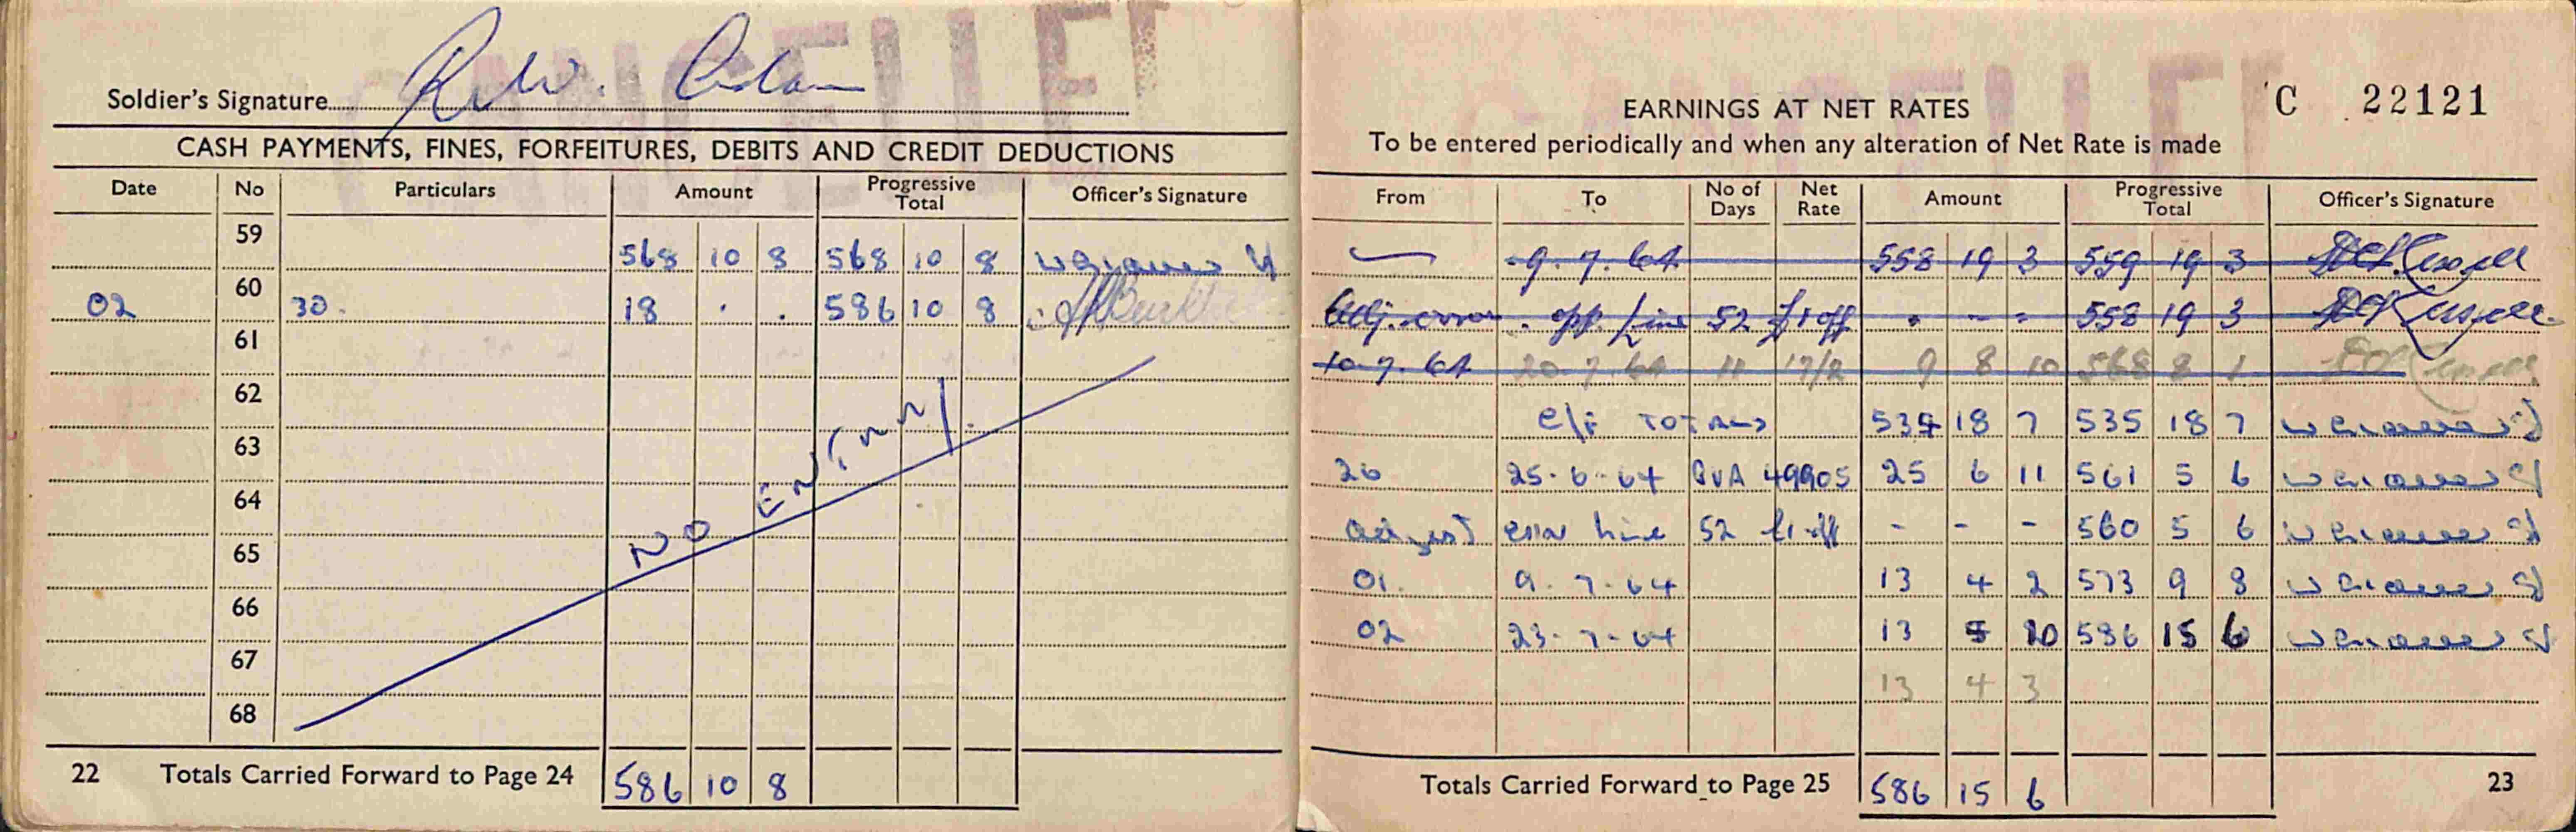 CANCELLED
Soldier's Signature
CASH PAYMENTS, FINES, FORFEITURES, DEBITS AND CREDIT DEDUCTIONS
Date No Particulars Amount Progressive Total Officer's Signature
59 568 10 8 568 10 8
60
02 30. 18 . . 586 10 8
61
62
63
64
65
66
67
68
NO ENTRY
22 Totals Carried Forward to Page 24 586 10 8
CANCELLED
C 22121
EARNINGS AT NET RATES
To be entered periodically and when any alteration of Net Rate is made
From To No of Days Net Rate Amount Progressive Total Officer's Signature
9.7.64 558 19 3 559 19 3
Adj. error. opp. line 52 £1 off . - - 558 19 3
10.7.64 20.7.64 11 17/2 9 8 10 568 8 1
TOTALS 535 18 7 535 18 7
26 25-6-64 49905 25 6 11 561 5 6
Adjust error line 52 £1 off - - - 560 5 6
01. 9-7-64 13 4 2 573 9 8
02 23-7-64 13 5 10 586 15 6
13 4 3
Totals Carried Forward to Page 25 586 15 6
23